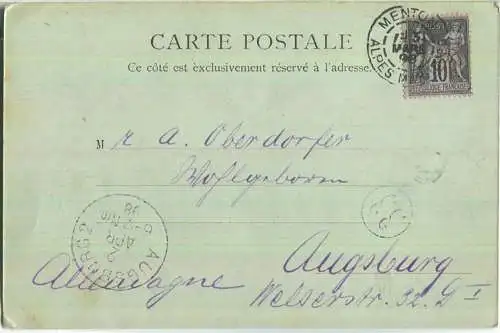 MENTON
MARS
98
ALPES MAR
10
REPUBLIQUE FRANÇAISE
CARTE POSTALE
Ce côté est exclusivement réservé à l'adresse.
M r. A. Oberdorfer
Wohlgeboren
AUGSBURG 2
2
APR
98
Augsburg
Allemagne
Welserstr. 32. G I